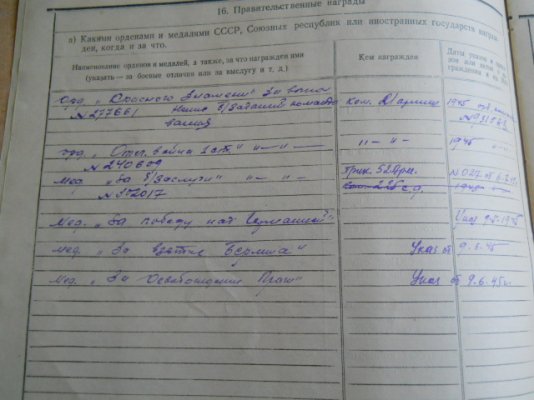 16. Правительственные награды
а) Какими орденами и медалями СССР, Союзных республик или иностранных государств награж-
ден, когда и за что.
Наименование орденов и медалей, а также, за что награжден ими
(указать — за боевые отличия или за выслугу и т. д.)
Кем награжден
Даты указа и
орд. „Красного Знамени" За выпол
нение б/заданий командо
вания
№ 277661
ком. армии
1945
орд. „Отеч. война 2 ст." „—„—
№ 240609
„ – „
1945
мед. „За б/заслуги" „ – „ –
№ 372017
Прик. 52 Арм.
№ 027
Мед. „За победу над Германией"
Указ 9.5.1945
мед. „За взятие Берлина"
Указ от 9.6.45
Мед. „За Освобождение Праги"
Указ от 9.6.45 г.